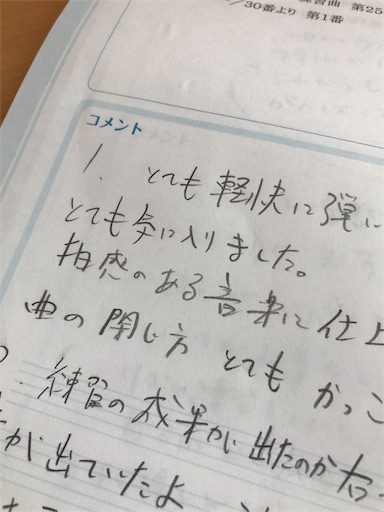 練習曲 第25
30番より 第1番
コメント
1. とても軽快に弾い
とても気に入りました。
のある音楽に仕上
曲の閉じ方 とても かっこ
練習の成果が出たのか右
が出ていたよ